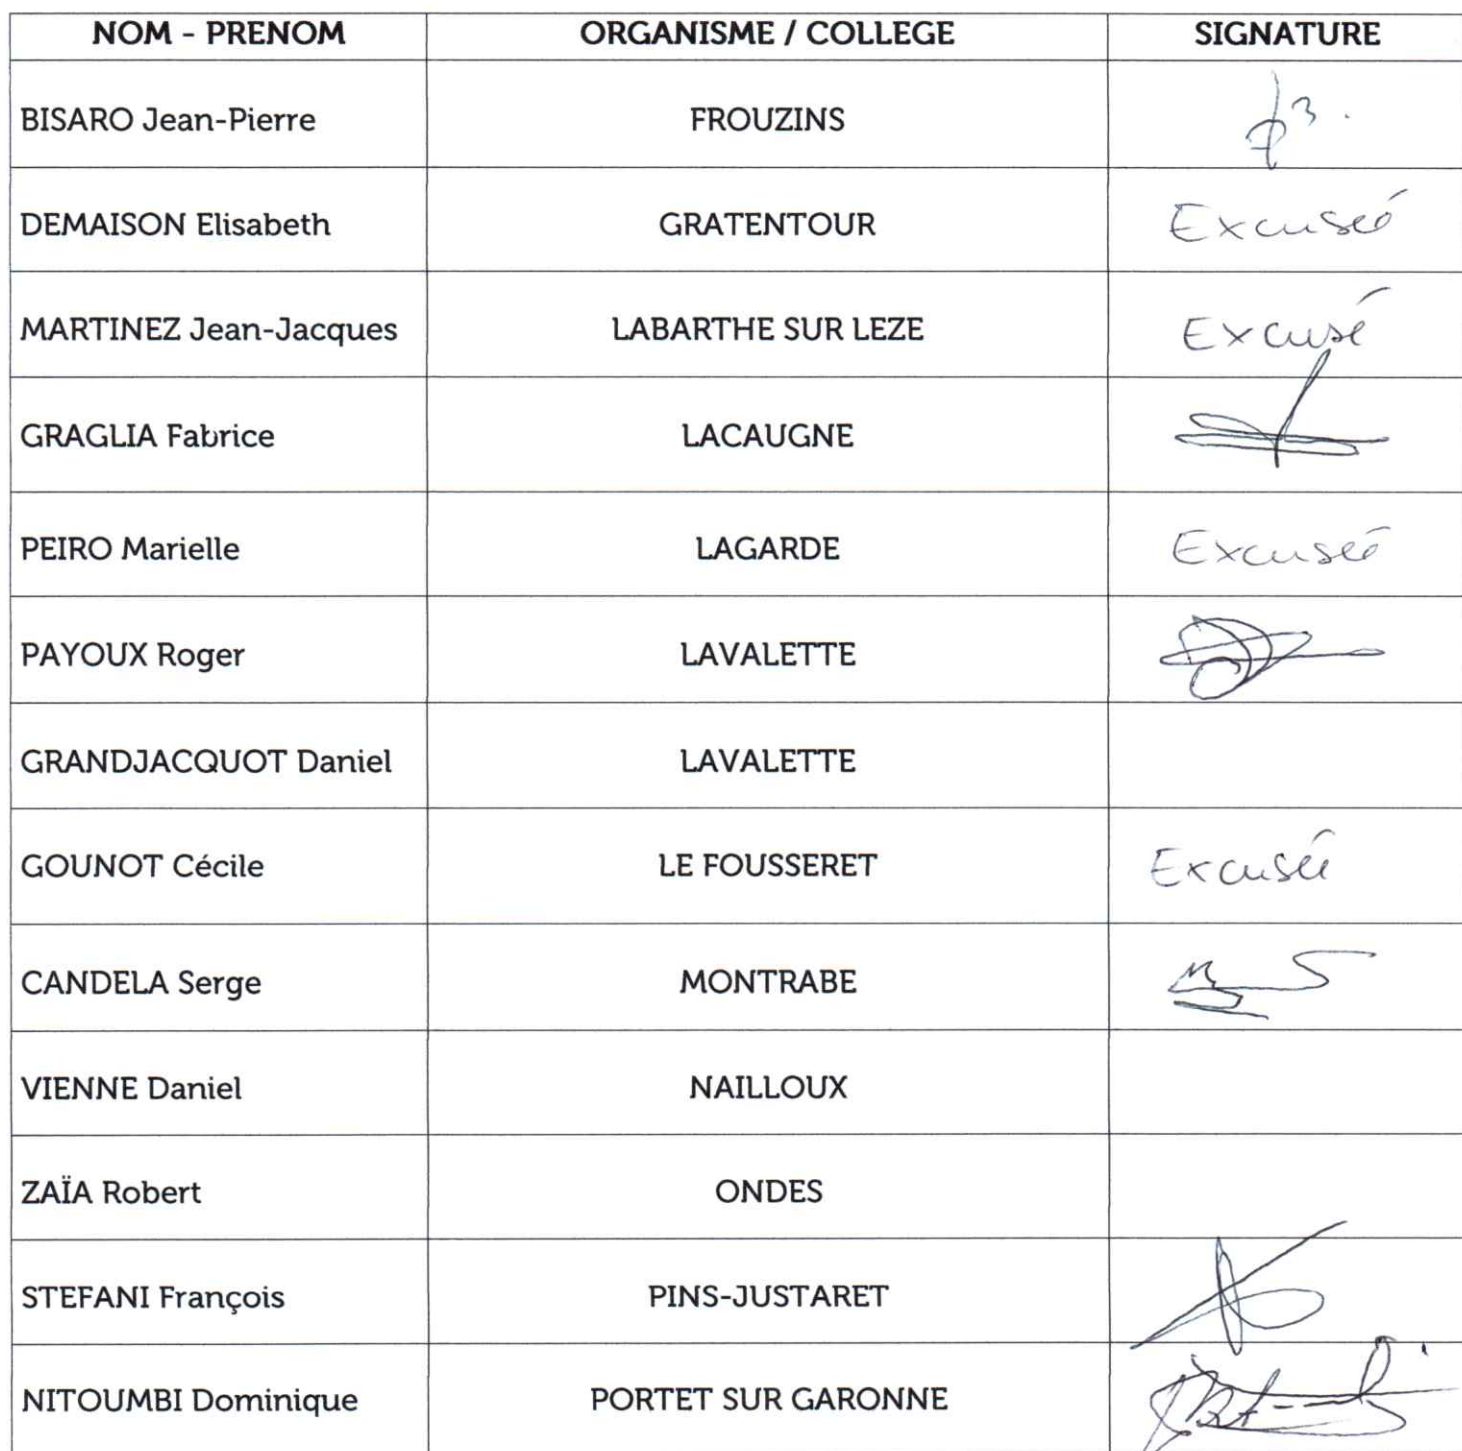 NOM - PRENOM ORGANISME / COLLEGE SIGNATURE
BISARO Jean-Pierre FROUZINS
DEMAISON Elisabeth GRATENTOUR Excusée
MARTINEZ Jean-Jacques LABARTHE SUR LEZE Excusé
GRAGLIA Fabrice LACAUGNE
PEIRO Marielle LAGARDE Excusée
PAYOUX Roger LAVALETTE
GRANDJACQUOT Daniel LAVALETTE
GOUNOT Cécile LE FOUSSERET Excusée
CANDELA Serge MONTRABE
VIENNE Daniel NAILLOUX
ZAÏA Robert ONDES
STEFANI François PINS-JUSTARET
NITOUMBI Dominique PORTET SUR GARONNE